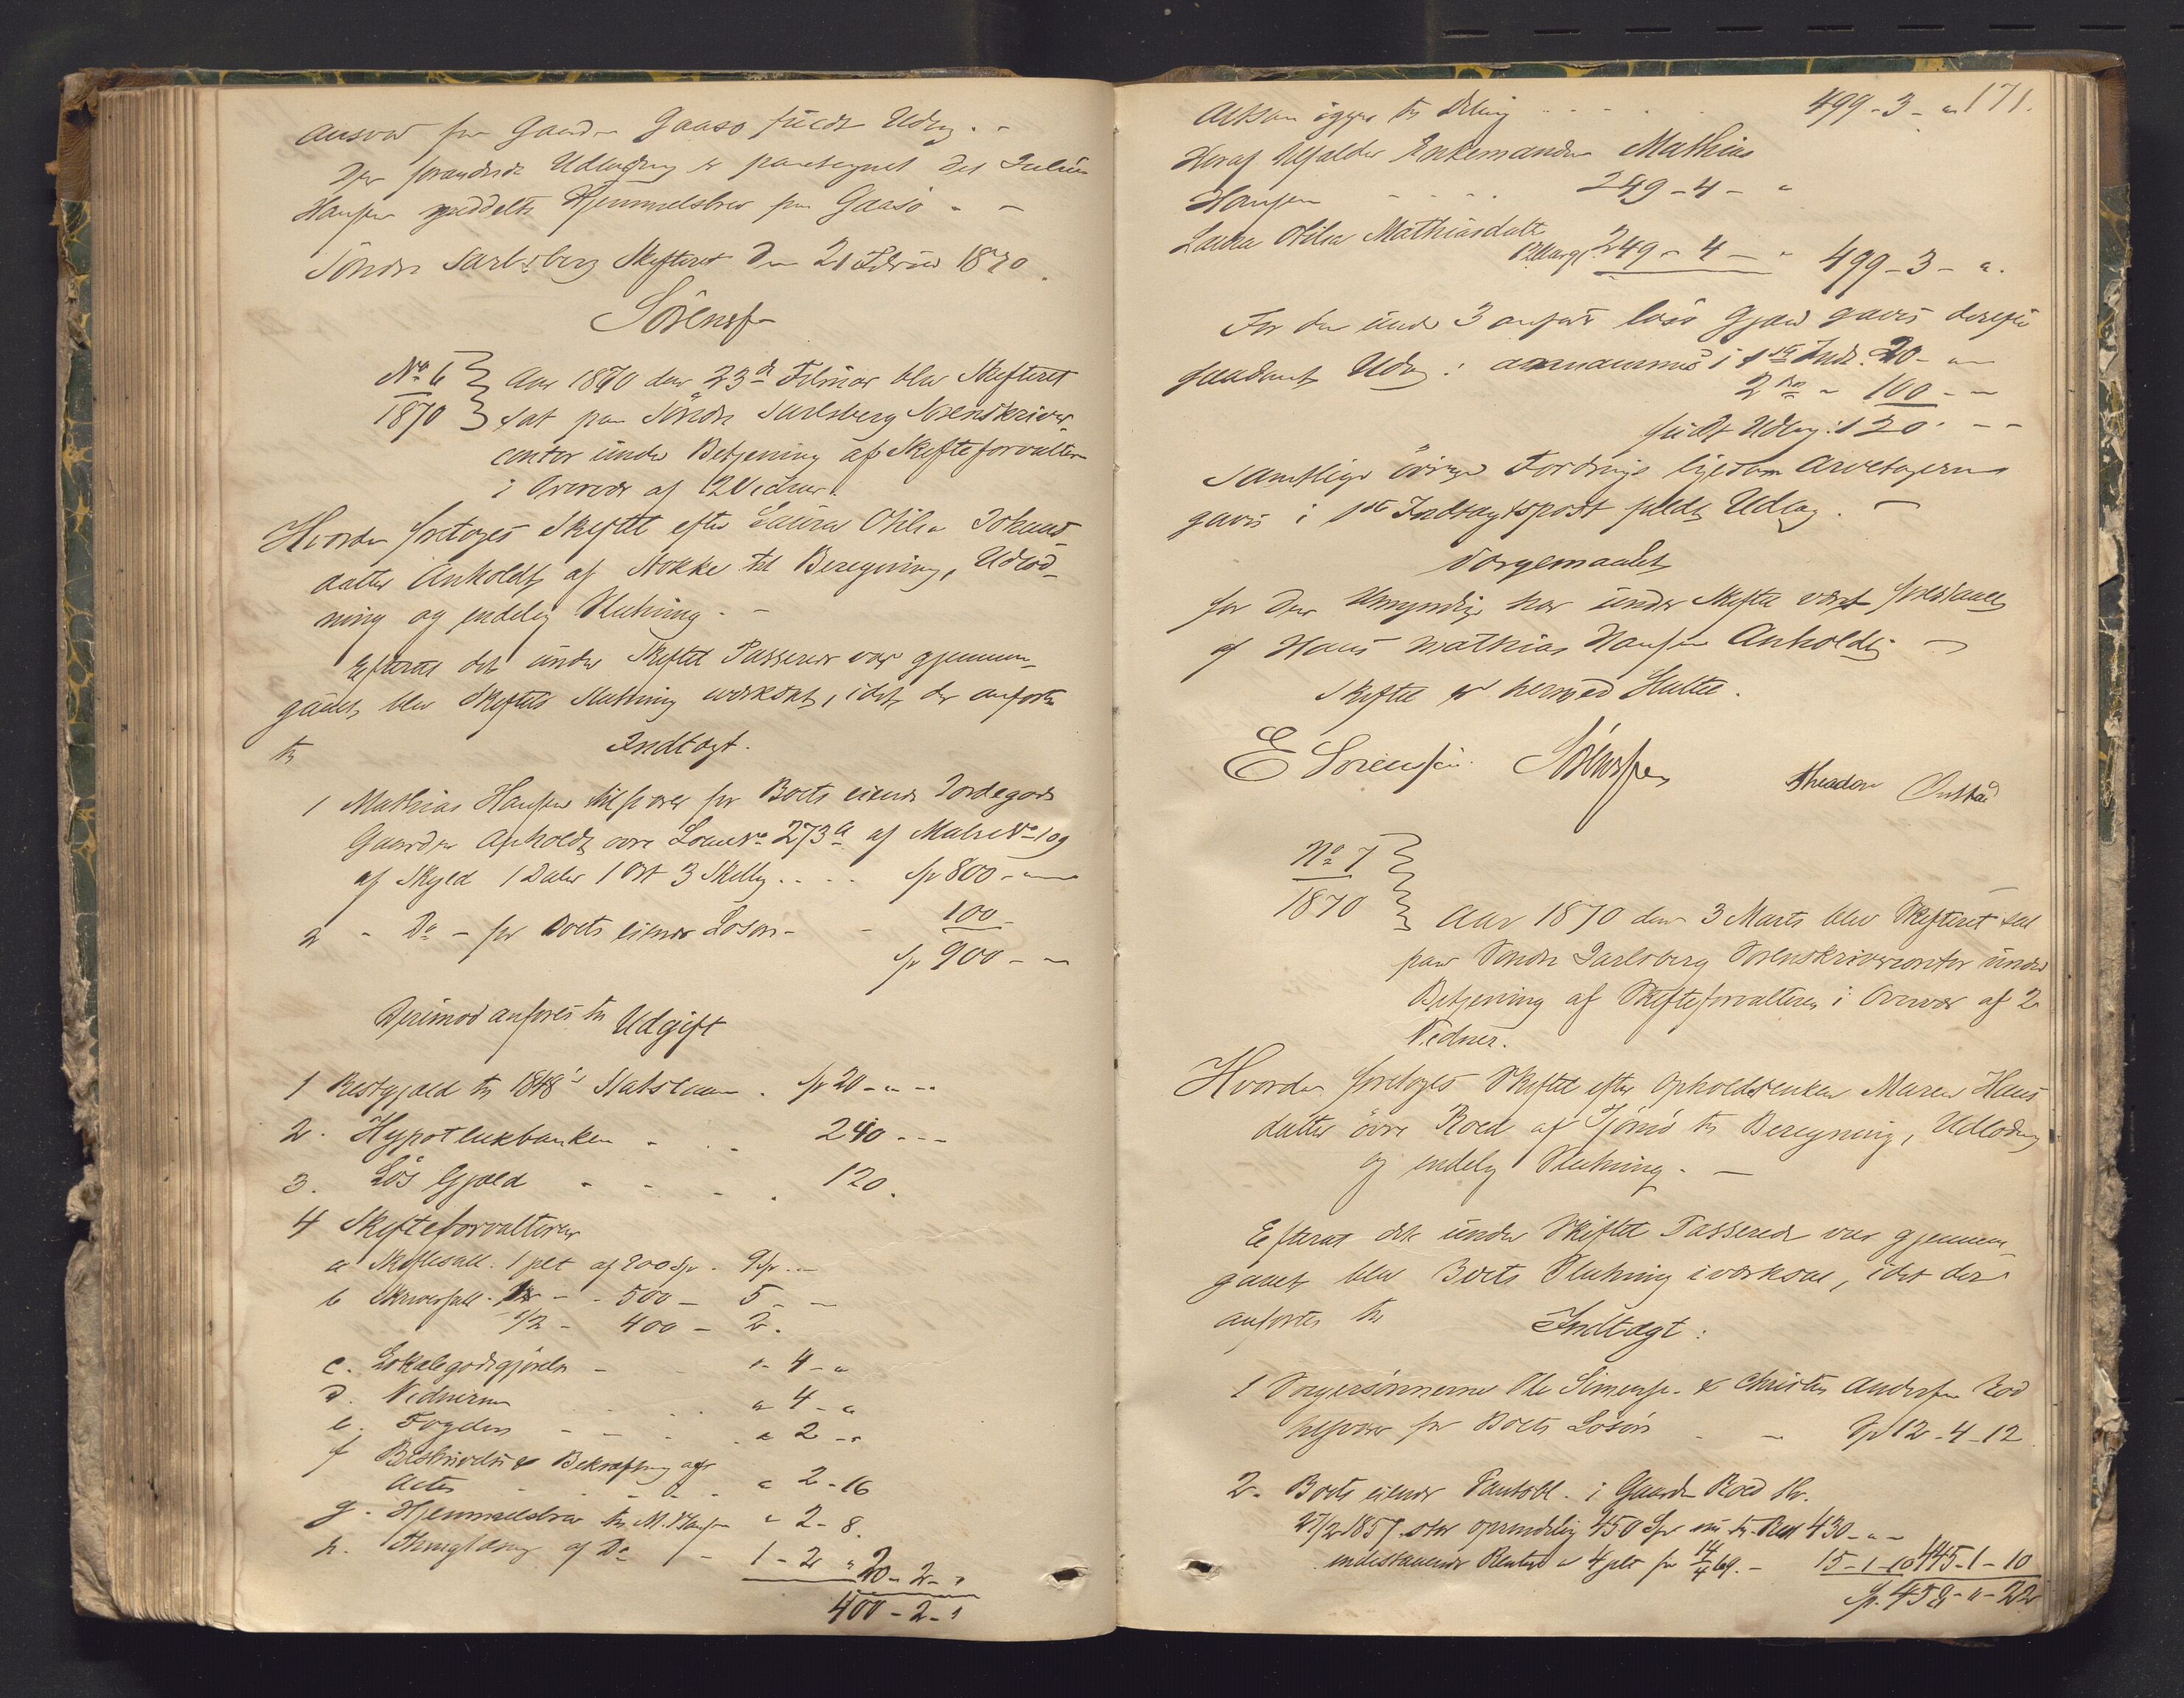 Ansvar for Gaarden Gaasø fuldt Udlæg. -
Den forandrede Udlodning er paategnet det Julius
Hansen meddelte Hjemmelsbrev paa Gaasø - -
Søndre Jarlsberg Skifteret den 21 Februar 1870.
Sørensen
No 6
1870
Aar 1870 den 23de Februar blev Skifteret
sat paa Søndre Jarlsberg Sorenskriver-
contor under Betjening af Skifteforvalteren
i Overvær af 2 Vidner.
Hvorda foretoges Skiftet efter Laura Otilia Johans-
datter Anholdt af Stokke til Beregning, Udlod-
ning og endelig Slutning. -
Efterat det under Skiftet Passerede var gjennem-
gaaet, blev Skiftets Slutning iværksat, idet der anførtes
til
Indtægt.
1 Mathias Hansen tilsvarer for Boets eiende Jordegods
Gaarden Anholdt øvre Løbeno 273a af Matr No 109
af Skyld 1 Daler 1 Ort 3 Skilling . . . . Sp 800 - "
2 - Do - for Boets eiende Løsøre - - 100 -
Sp 900 - -
Derimod anføres til Udgift
1 Restgjæld til 1848's Statslaan . Sp 20 - " -
2. Hypothekbanken - . . 240 - - -
3. Løs Gjæld - - - . 120.
4 Skifteforvalteren
a Skiftesall. 1 pct af 900 Sp . 9 Sp. -
b Skriversall. 1 - - 500 - 5 - -
1/2 - 400 - 2.
c. Lokalegodtgjørelse - " - 4 - "
d. Vidnerne . . . . " 4 - "
e. Fogden - - - . " 2 - "
f Beskrivelse & Bekræftning af
Acten - - - . " 2 - 16
g. Hjemmelsbrev til M. Hansen " 2 - 8.
h. Thinglæsning af Do - 1 - 2 " 20 - 2 - "
400 - 2 - "
171.
Altsaa igjen til Deling . . - . . 499 - 3 - "
Heraf tilfalder Enkemanden Mathias
Hansen - - - . 249 - 4 - "
Laura Otilia Mathiasdatter
249 - 4 - " 499 - 3 - ".
For den under 3 anførte løse Gjæld gaves derefter
saadant Udlæg: i 1ste Indt. 20 - "
2den " 100 - -
fuldt Udlæg: 120. - -
Samtlige øvrige Fordringer ligesom Arvetagerne
gaves i 1ste Indtægtspost fuldt Udlæg. -
Værgemaalet
for den Umyndige har under Skiftet været forestaaet
af Hans Mathias Hansen Anholdt -
Skiftet er hermed sluttet.
E Sørensen. Sørensen Theodor Onstad
No 7
1870
Aar 1870 den 3 Marts blev Skifteret sat
paa Søndre Jarlsberg Sorenskrivercontor under
Betjening af Skifteforvalteren i Overvær af 2
Vidner.
Hvorda foretoges Skiftet efter Opholdsenken Maren Hans-
datter øvre Roed af Tjømø til Beregning, Udlodning
og endelig Slutning. -
Efterat det under Skiftet Passerede var gjennem-
gaaet blev Boets Slutning iværksat, idet der
anførtes til Indtægt:
1 Svigersønnerne Ole Simensen & Christen Andersen Rød
tilsvarer for Boets Løsøre - - Sp 12 - 4 - 12
2. Boets eiende Pantobl. i Gaarden Roed
27/2 1857 stor oprindelig 450 Sp nu til Rest 430 - " -
indestaaende Renter a 4 pct fra 14/4 69. - 15 - 1 - 10 445 - 1 - 10
Sp. 458 - " - 22